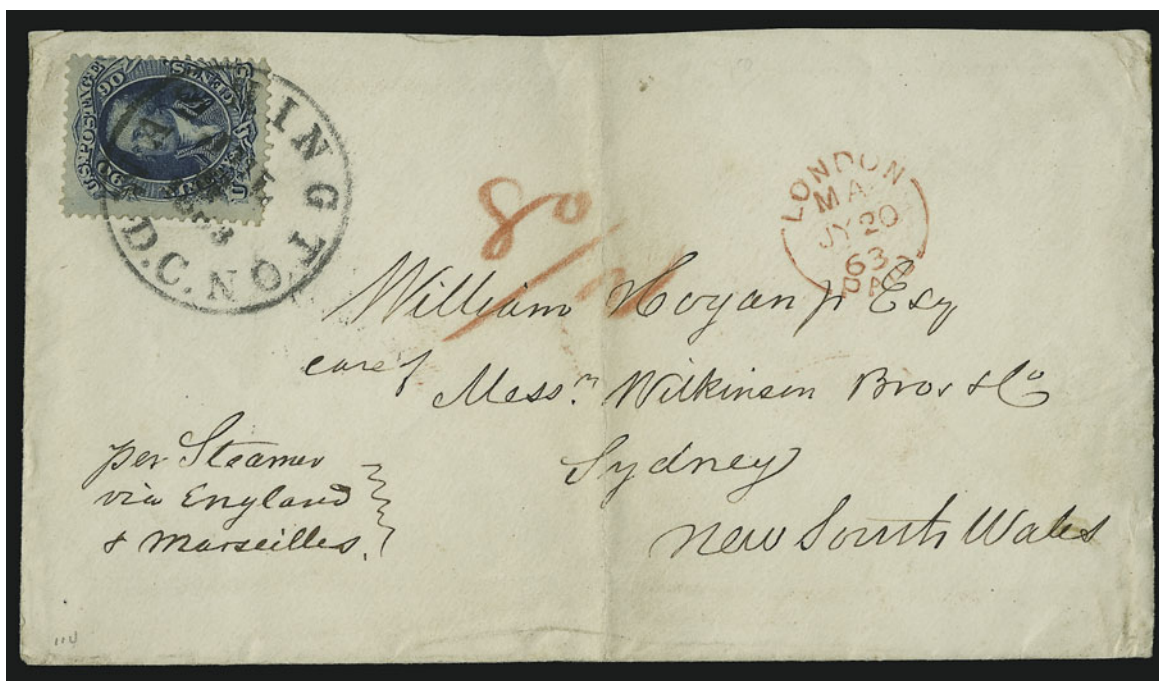 U.S. POSTAGE
90
WASHINGTON
D.C.
1863
LONDON
MA
JY 20
63
PAID
80/
William Hogan jr Esq
care of
Messrs Wilkinson Bros & Co
Sydney
New South Wales
per Steamer
via England
& Marseilles.